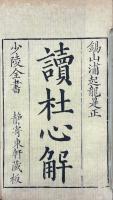 錫山浦起龍是正
讀杜心解
少陵全書
靜寄東軒藏板